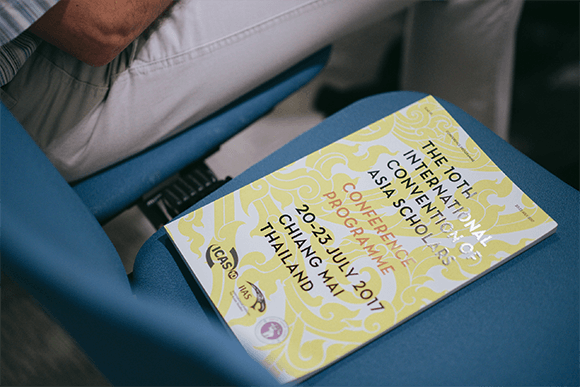 THE 10TH
INTERNATIONAL
CONVENTION OF
ASIA SCHOLARS
CONFERENCE
PROGRAMME
20-23 JULY 2017
CHIANG MAI
THAILAND
ICAS
IIAS